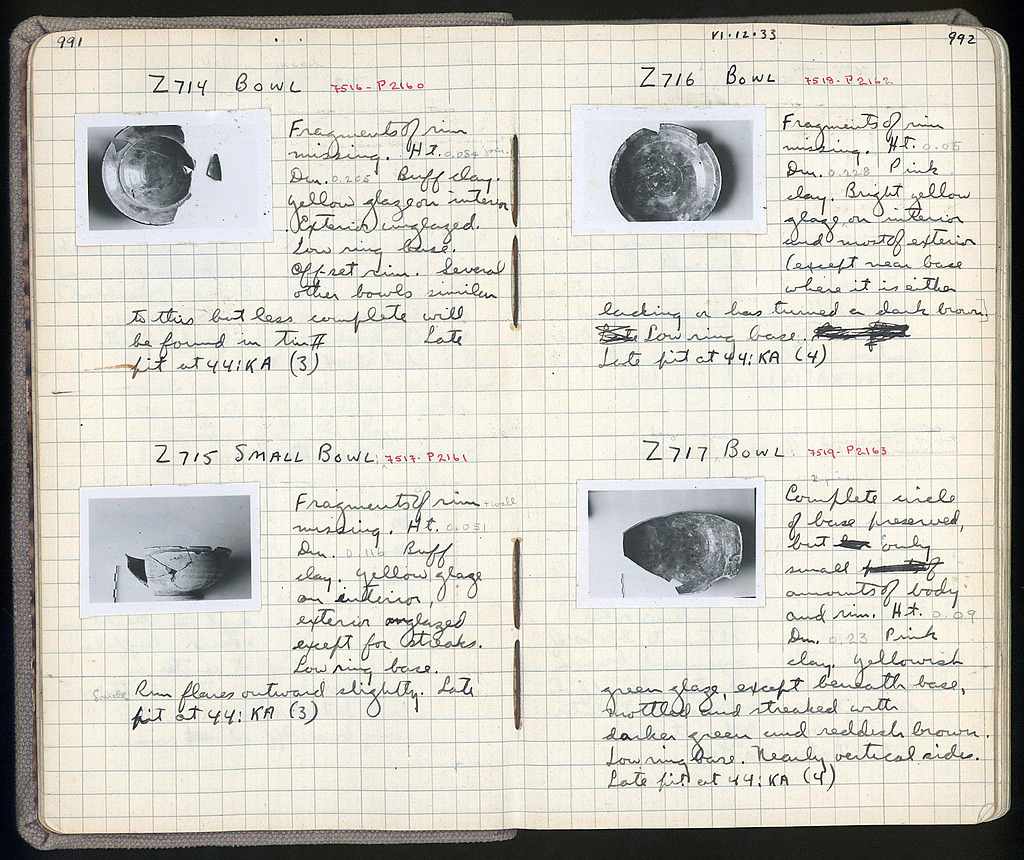 991
Z714 BOWL 7516-P2160
Fragments of rim
missing. Ht. 0.084
Dm. 0.205 Buff clay.
Yellow glaze on interior
Exterior unglazed.
Low ring base.
Offset rim. Several
other bowls similar
to this but less complete will
be found in Tin # Late
pit at 44:KA (3)
Z715 SMALL BOWL 7517-P2161
Fragments of rim + wall
missing. Ht. 0.051
Dm. 0.116 Buff
clay. Yellow glaze
on interior,
exterior unglazed
except for streaks.
Low ring base.
Rim flares outward slightly. Late
pit at 44:KA (3)
VI·12·33 992
Z716 BOWL 7518-P2162
Fragments of rim
missing. Ht. 0.05
Dm. 0.228 Pink
clay. Bright yellow
glaze on interior
and most of exterior
(except near base
where it is either
lacking or has turned a dark brown)
Low ring base.
Late pit at 44:KA (4)
Z717 BOWL 7519-P2163
Complete circle
of base preserved,
but only
small
amounts of body
and rim. Ht. 0.09
Dm. 0.23 Pink
clay. Yellowish
green glaze, except beneath base,
mottled and streaked with
darker green and reddish brown.
Low ring base. Nearly vertical sides.
Late pit at 44:KA (4)